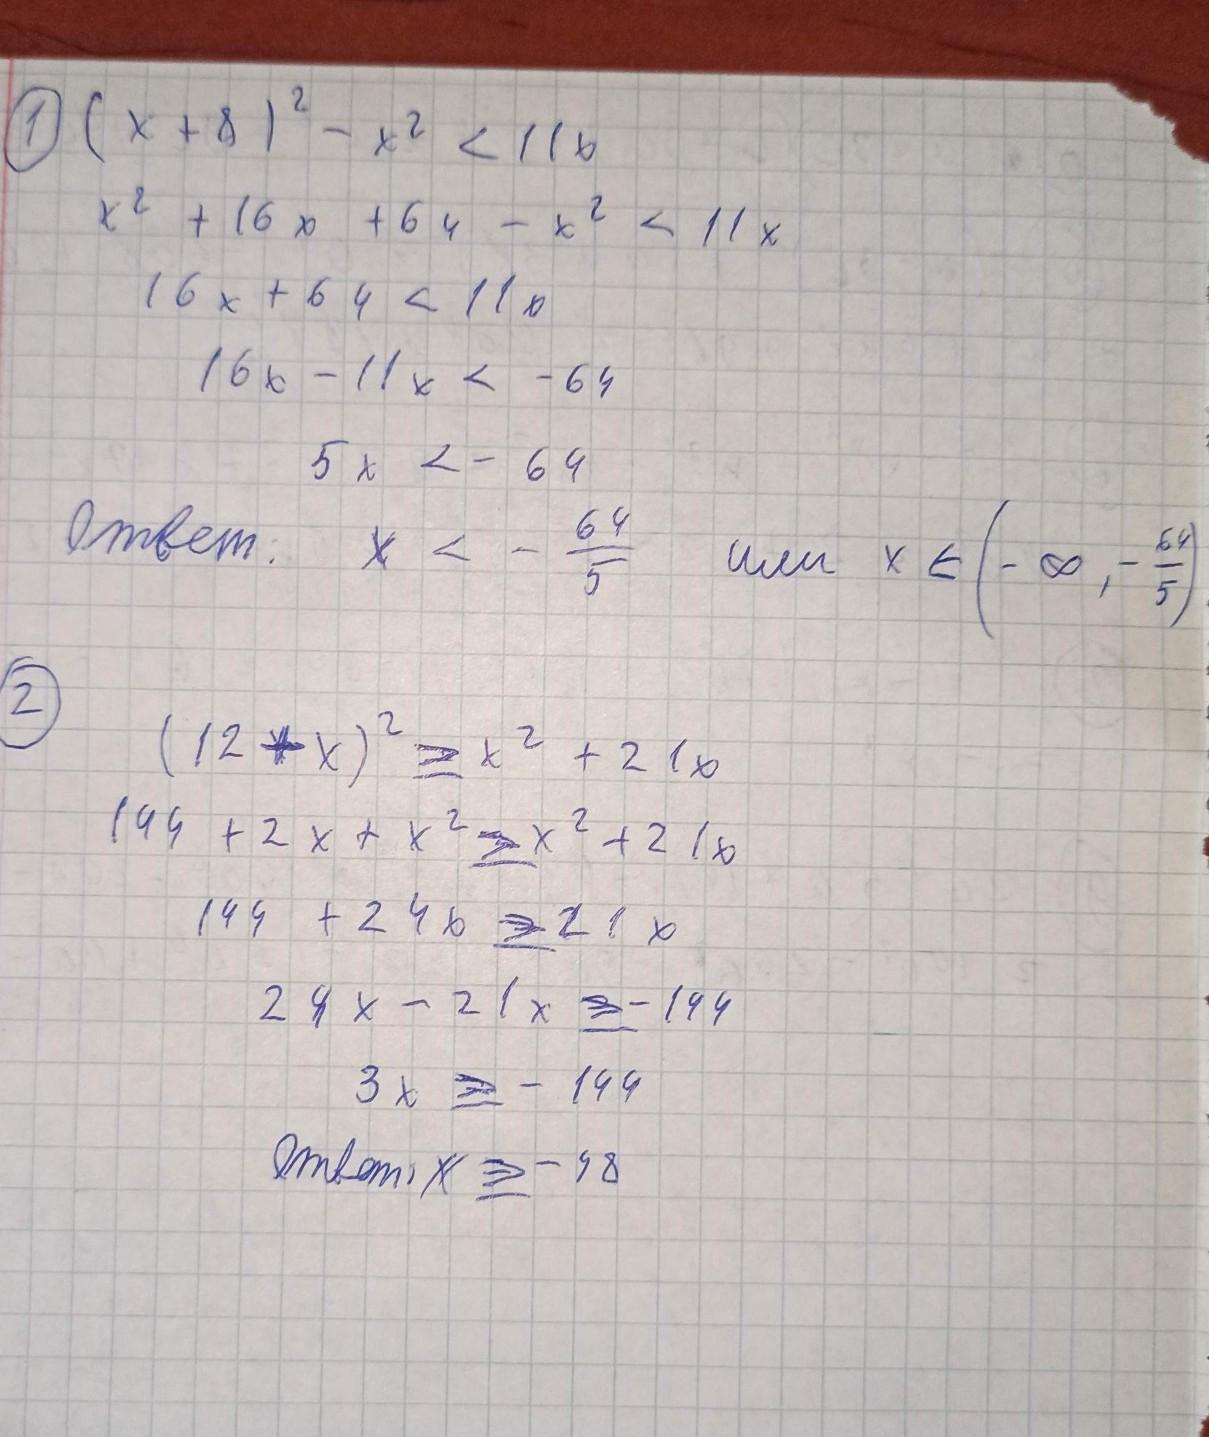 ① (x + 8)² - x² < 11x
x² + 16x + 64 - x² < 11x
16x + 64 < 11x
16x - 11x < -64
5x < - 64
Ответ: x < - 64/5 или x ∈ (- ∞, - 64/5)
②
(12 + x)² ≥ x² + 21x
144 + 2x + x² ≥ x² + 21x
144 + 24x ≥ 21x
24x - 21x ≥ -144
3x ≥ - 144
Ответ: x ≥ - 48